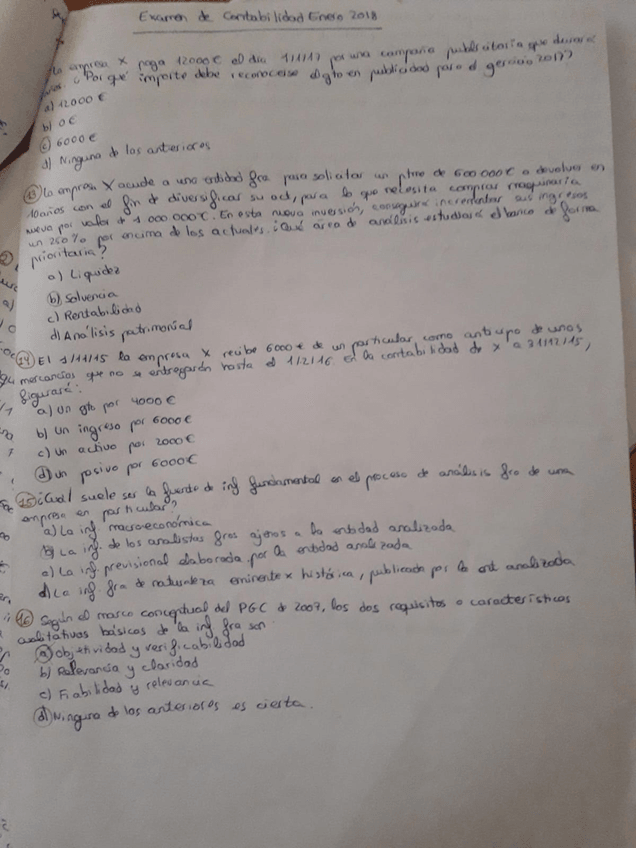 Examen de Contabilidad Enero 2018
La empresa X paga 12000€ el día 1/1/17 por una campaña publicitaria que durará
¿Por qué importe debe reconocerse el gto en publicidad para el 2017?
a) 12.000 €
b) 0€
c) 6000€
d) Ninguna de las anteriores
13 La empresa X acude a una entidad fra para solicitar un ptmo de 600 000€ a devolver en
10 años con el fin d diversificar su act, para lo que necesita comprar maquinaria
nueva por valor d 1 000 000€. En esta nueva inversión, conseguirá incrementar sus ingresos
un 250% por encima de los actuales. ¿Qué área de análisis estudiará el banco de forma
prioritaria?
a) Liquidez
b) Solvencia
c) Rentabilidad
d) Análisis patrimonial
14 El 1/11/15 la empresa X recibe 6000€ de un particular como anticipo de unas
mercancías que no se entregarán hasta el 1/2/16. En la contabilidad de X a 31/12/15,
figurará:
a) Un gto por 4000€
b) Un ingreso por 6000€
c) Un activo por 2000€
d) Un pasivo por 6000€
15 ¿Cual suele ser la fuente de inf fundnmental en el proceso de análisis fro de una
empresa en particular?
a) La inf. macroeconómica
b) La inf. de los analistas fros ajenos a la entidad analizada
c) La inf previsional elaborada por la entidad analizada
d) La inf. fra de naturaleza eminentex histórica, publicada por la ent analizada
16 Según el marco conceptual del PGC d 2007, los dos requisitos o características
cualitativas básicos de la inf fra son
a) Objetividad y verificabilidad
b) Relevancia y claridad
c) Fiabilidad y relevancia
d) Ninguna de las anteriores es cierta.